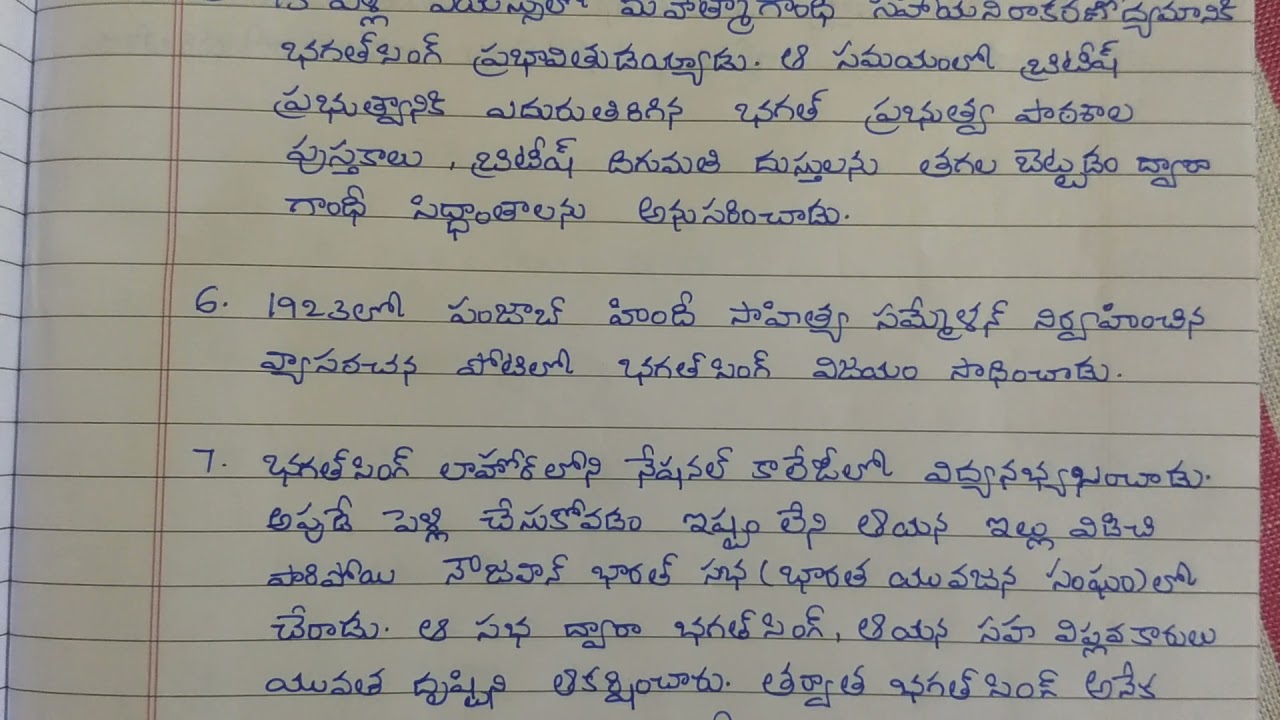 13 ఏళ్ల వయస్సులో మహాత్మాగాంధీ సహాయనిరాకరణోద్యమానికి
భగత్‌సింగ్ ప్రభావితుడయ్యాడు. ఆ సమయంలో బ్రిటీష్
ప్రభుత్వానికి ఎదురుతిరిగిన భగత్ ప్రభుత్వ పాఠశాల
పుస్తకాలు, బ్రిటీష్ దిగుమతి దుస్తులను తగల బెట్టడం ద్వారా
గాంధీ సిద్ధాంతాలను అనుసరించాడు.
6. 1923లో పంజాబ్ హిందీ సాహిత్య సమ్మేళన్ నిర్వహించిన
వ్యాసరచన పోటీలో భగత్‌సింగ్ విజయం సాధించాడు.
7. భగత్‌సింగ్ లాహోర్‌లోని నేషనల్ కాలేజీలో విద్యనభ్యసించాడు.
అపుడే పెళ్లి చేసుకోవడం ఇష్టం లేని ఆయన ఇల్లు విడిచి
పారిపోయి నౌజవాన్ భారత్ సభ (భారత యువజన సంఘం)లో
చేరాడు. ఆ సభ ద్వారా భగత్‌సింగ్, ఆయన సహ విప్లవకారులు
యువత దృష్టిని ఆకర్షించారు. తర్వాత భగత్‌సింగ్ అనేక